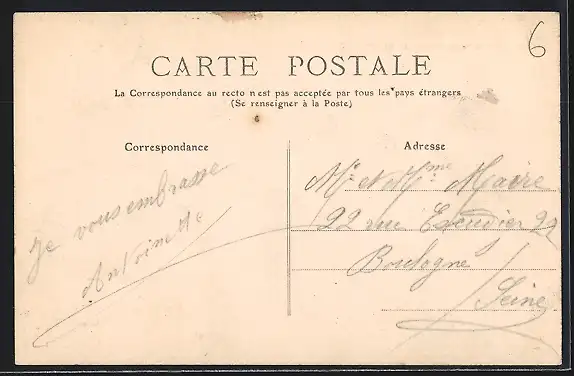 6
CARTE POSTALE
La Correspondance au recto n'est pas acceptée par tous les pays étrangers
(Se renseigner à la Poste)
Correspondance
Je vous embrasse
Antoinette
Adresse
Mr et Mme Maire
22 rue Escudier 22
Boulogne
Seine